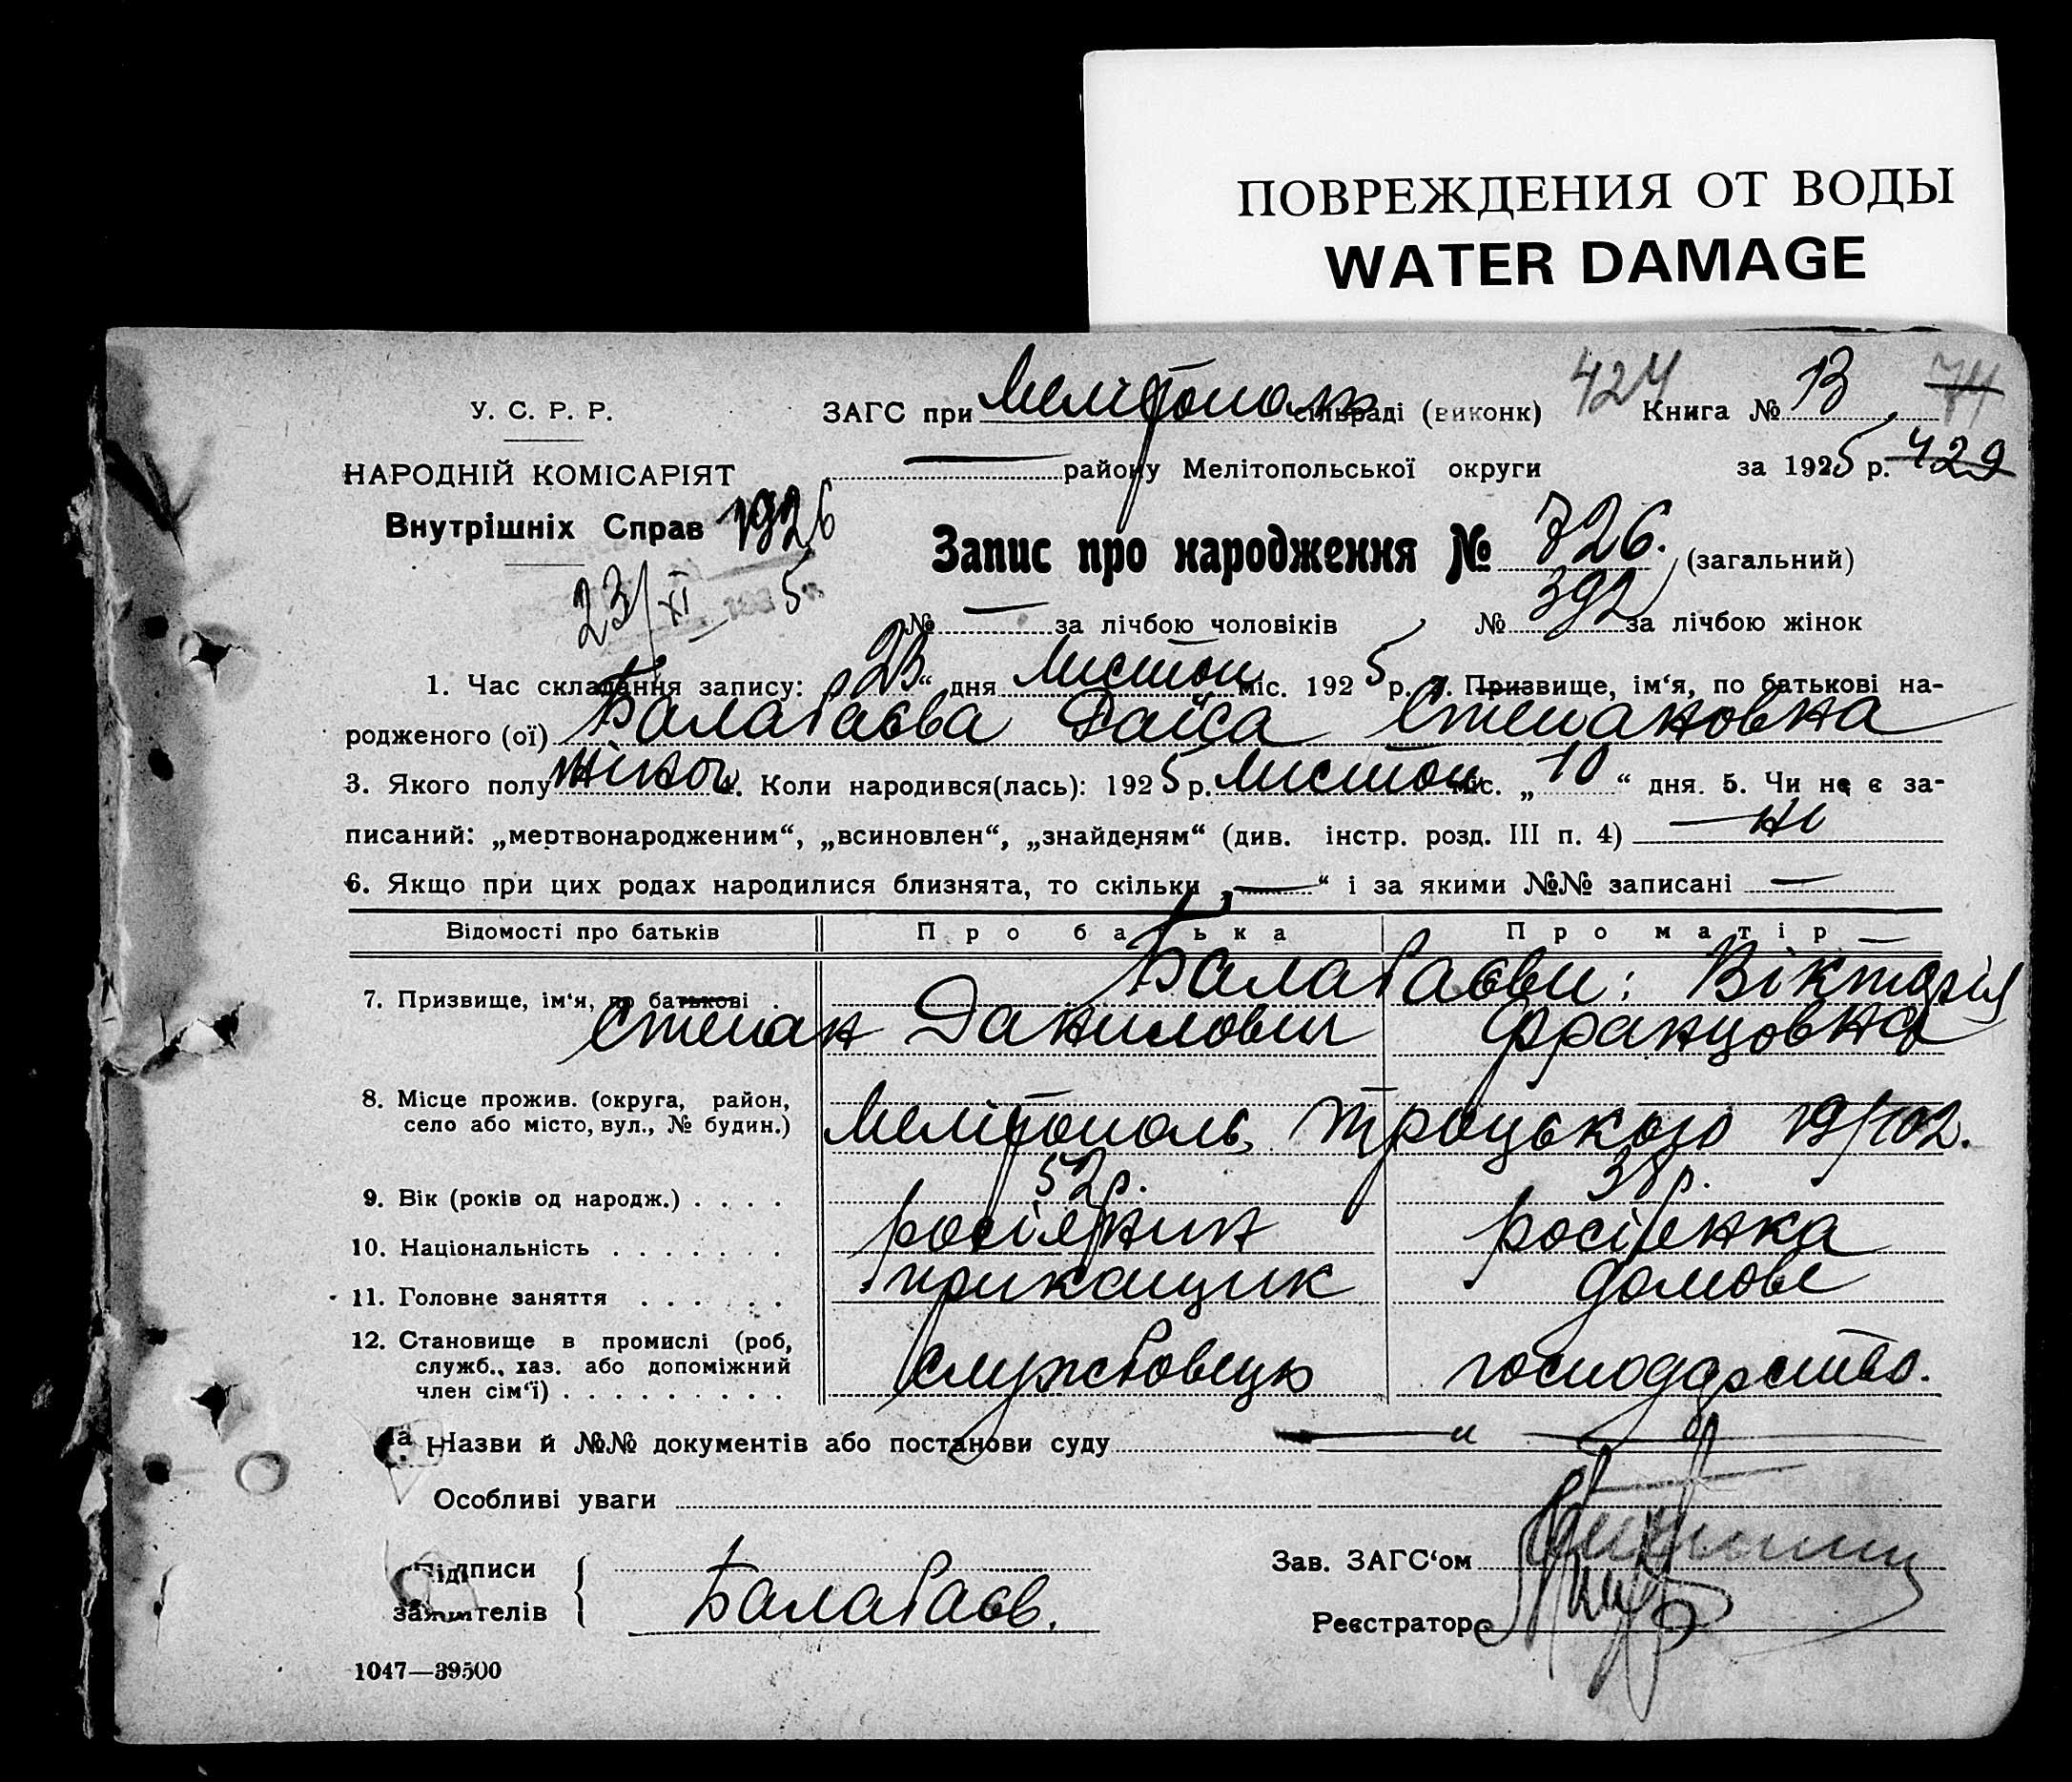 ПОВРЕЖДЕНИЯ ОТ ВОДЫ
WATER DAMAGE
У. С. Р. Р.
ЗАГС при Мелітопол сільраді (виконк) 424 Книга № 13 74
НАРОДНІЙ КОМІСАРІЯТ
— району Мелітопольської округи за 1925 р. 429
Внутрішніх Справ 1926
Запис про народження № 726. (загальний)
23/XI 5
№ — за лічбою чоловіків, № 392 за лічбою жінок
1. Час складання запису: „23“ дня Листоп міс. 1925 р. 2. Призвище, ім‘я, по батькові на-
родженого (ої) Балагаєва Раїса Степановна
3. Якого полу жіноч 4. Коли народився(лась): 1925 р. Листоп міс. „10“ дня. 5. Чи не є за-
писаний: „мертвонародженим“, „всиновлен“, „знайденям“ (див. інстр. розд. III п. 4) — ні
6. Якщо при цих родах народилися близнята, то скільки „—“ і за якими №№ записані —
Відомості про батьків Про батька Про матір
7. Призвище, ім‘я, по батькові . Балагаєви: Вікторія
Степан Данилович Францовна
8. Місце прожив. (округа, район,
село або місто, вул., № будин.) Мелітополь, Троцького 19/102.
9. Вік (років од народж.) . . . . 52 р. 38 р.
10. Національність . . . . . . . росіянин росіянка
11. Головне заняття . . . . . . прикащик домове
12. Становище в промислі (роб,
служб., хаз. або допоміжний
член сім‘ї) . . . . . . . . . службовець господарство.
Назви й №№ документів або постанови суду — „ —
Особливі уваги
Підписи
заявителів { Балагаєв.
Зав. ЗАГС‘ом
Реєстратор
1047—39500